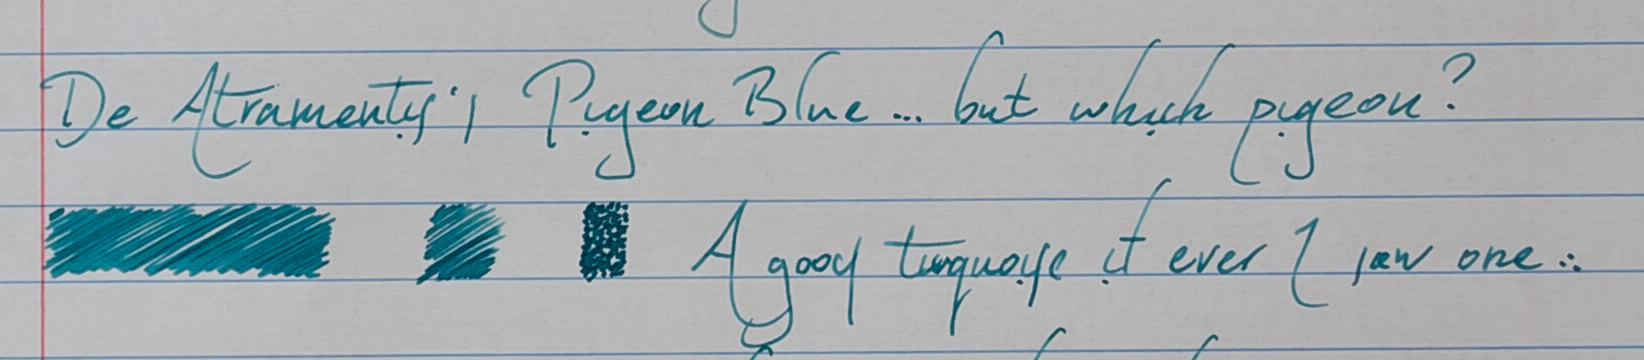 De Atramentis's Pigeon Blue... but which pigeon?
A good turquoise if ever I saw one...